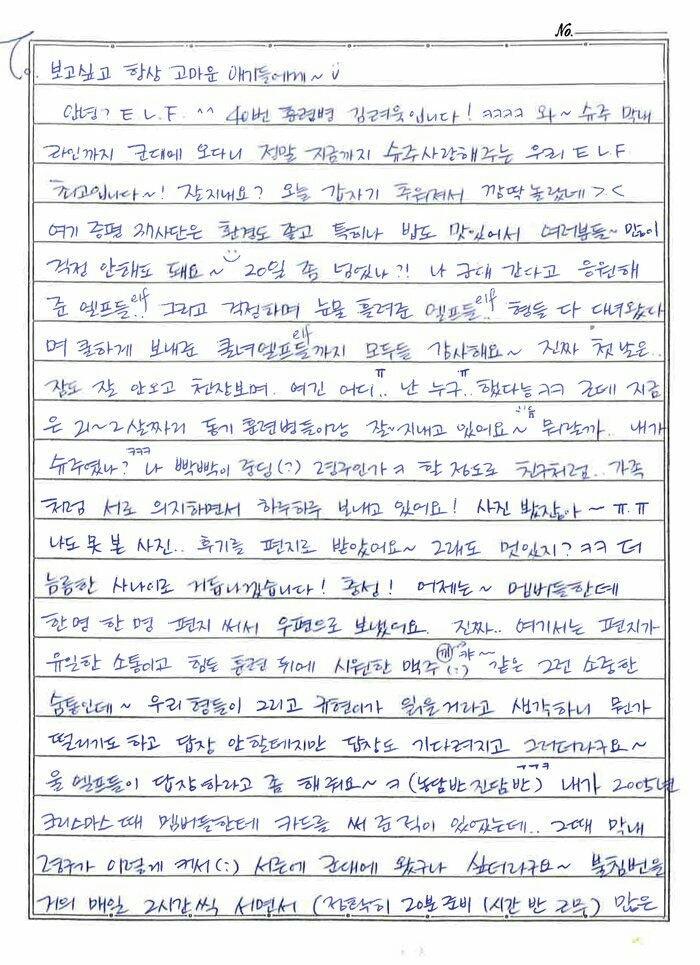 No.
To. 보고싶고 항상 고마운 애기들에게~
안녕? E.L.F. ^^ 40번 훈련병 김려욱입니다! ㅋㅋㅋㅋ 와~ 슈주 막내
라인까지 군대에 오다니 정말 지금까지 슈주사랑해주는 우리 E L F
최고입니다~! 잘지내요? 오늘 갑자기 추워져서 깜딱 놀랐네 >.<
여기 증평 37사단은 환경도 좋고 특히나 밥도 맛있어서 여러분들~ 많이
걱정 안해도 돼요~ 20일 좀 넘었나?! 나 군대 간다고 응원해
준 엘프들elf.. 그리고 걱정하며 눈물 흘려준 엘프들elf.. 형들 다 다녀왔다
며 쿨하게 보내준 쿨녀엘프들elf까지 모두들 감사해요~ 진짜 첫 날은..
잠도 잘 안오고 천장보며. 여긴 어디ㅠ.. 난 누구ㅠ.. 했다능ㅋㅋ 근데 지금
은 21~22살짜리 동기 훈련병들이랑 잘~지내고 있어요~ 뭐랄까.. 내가
슈주였나? ㅋㅋㅋ 나 빡빡이 중딩(:) 려욱인가ㅋ 할 정도로 친구처럼.. 가족
처럼 서로 의지하면서 하루하루 보내고 있어요! 사진 봤잖아~ ㅠ.ㅠ
나도 못 본 사진.. 후기를 편지로 받았어요~ 그래도 멋있지? ㅋㅋ 더
늠름한 사나이로 거듭나겠습니다! 충성! 어제는~ 멤버들한테
한명 한 명 편지 써서 우편으로 보냈어요. 진짜.. 여기서는 편지가
유일한 소통이고 힘든 훈련 뒤에 시원한 맥주(:) 캬~ 같은 그런 소중한
숨통인데~ 우리 형들이 그리고 규현이가 읽을거라고 생각하니 뭔가
떨리기도 하고 답장 안할테지만 답장도 기다려지고 그러더라구요~
울 엘프들이 답장하라고 좀 해줘요~ ㅋ (농담반 진담반) ㅋㅋㅋ 내가 2005년
크리스마스 때 멤버들한테 카드를 써 준 적이 있었는데.. 그때 막내
려욱가 이렇게 커서(:) 서른에 군대에 왔구나 싶더라구요~ 불침번을
거의 매일 2시간씩 서면서 (정확히 20분 준비 1시간 반 근무) 많은